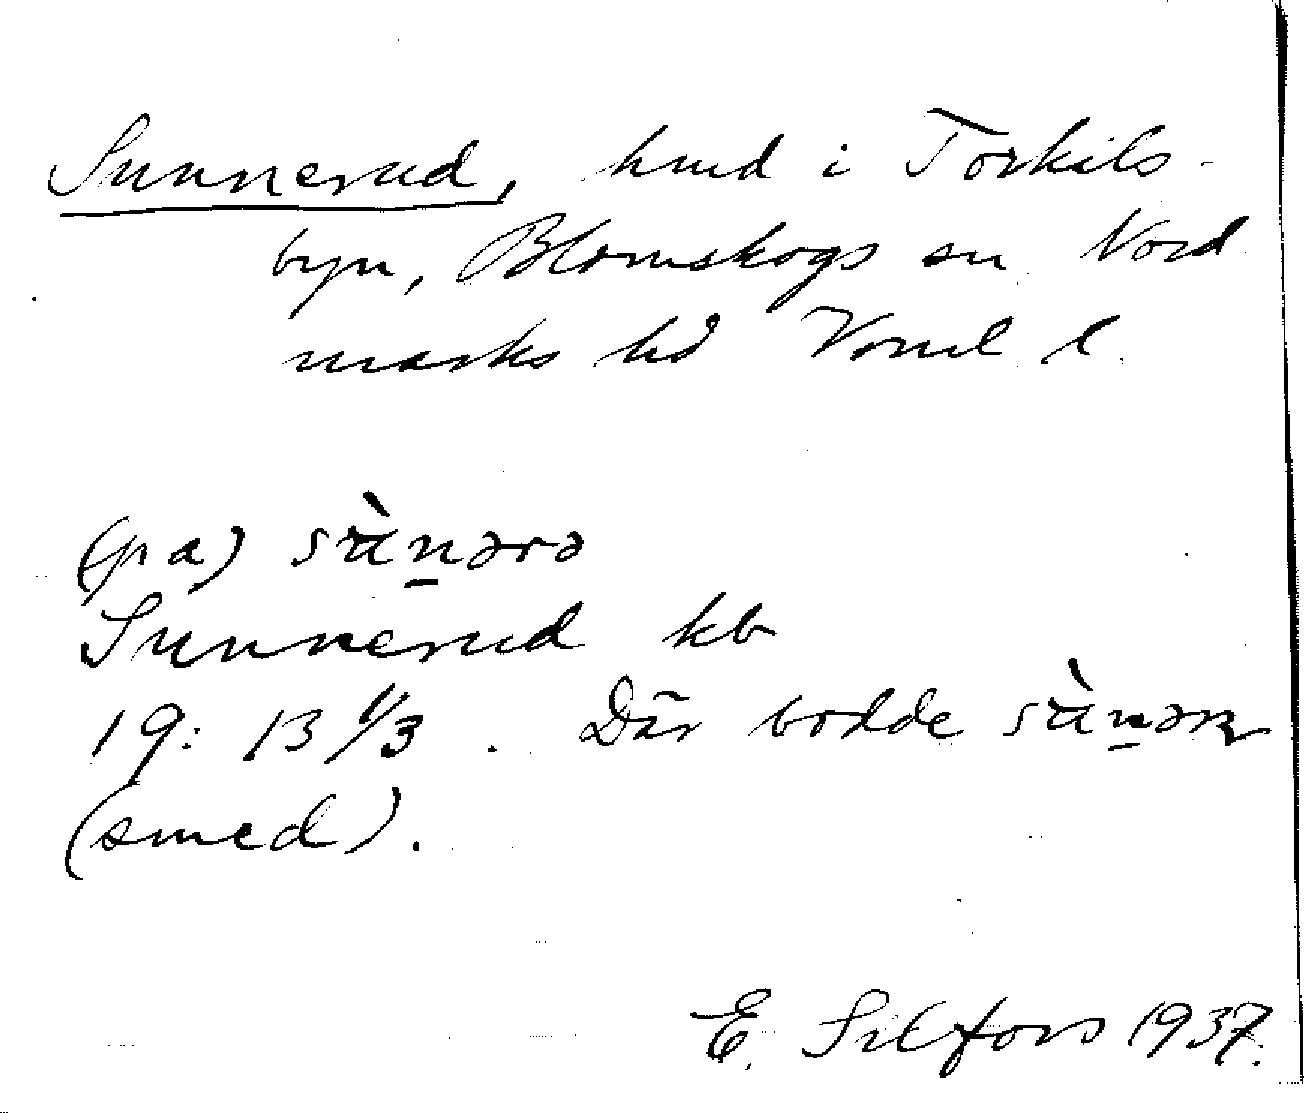 Sunnerud, hmd i Torkils-
byn, Blomskogs sn Nord
marks hd Vrml l.
(pa) sànərə
Sunnerud kb
19: 13 1/3. Där bodde sànərn
(smed).
E. Silfors 1937.